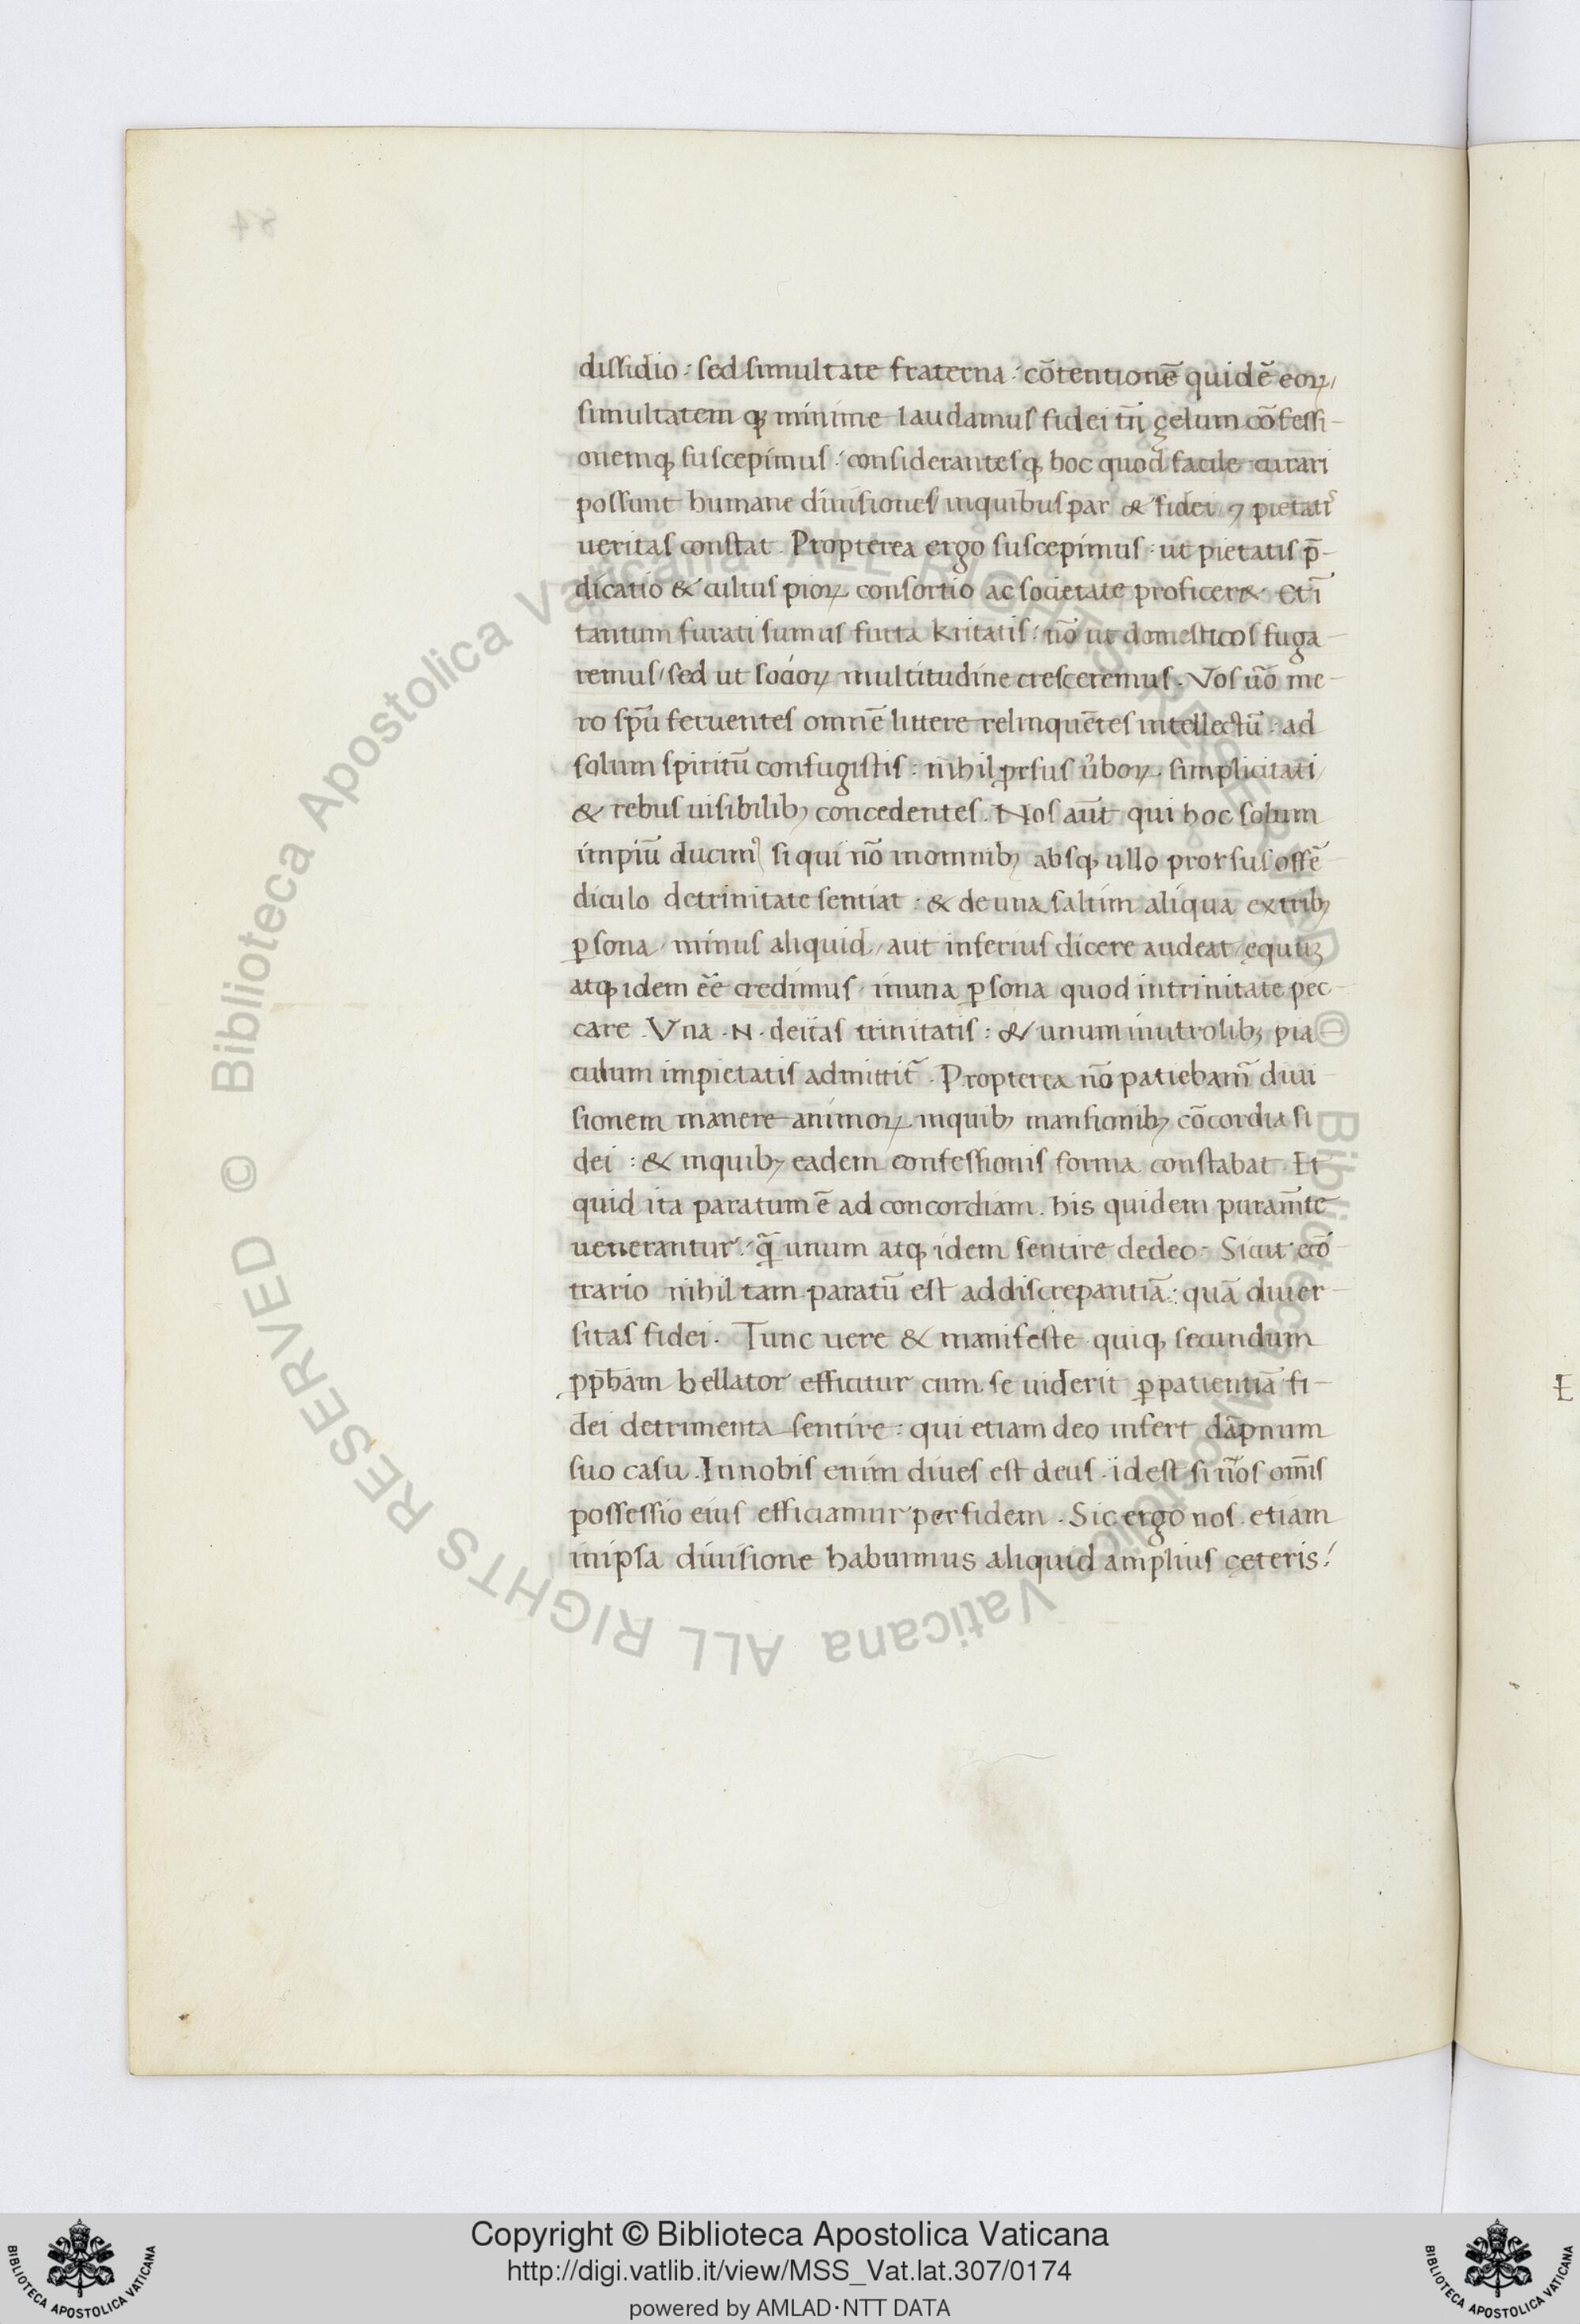 dissidio: sed simultate fraterna: cōtentionē quidē eoꝝ/
simultatem ꝙ minime laudamus fidei tn̄ zelum cōfessi-
onemq; suscepimus: considerantesq; hoc quod facile curari
possunt humane diuisiones/ inquibus par & fidei ⁊ pietatis
ueritas constat. Propterea ergo suscepimus: ut pietatis p̄-
dicatio & cultus pioꝝ consortio ac societate proficer&. Et ī
tantum furati sumus furta kritatis: nō ut domesticos fuga-
remus/ sed ut socioꝝ multitudine cresceremus. Vos u̅o me-
ro spū feruentes omnē littere relinquētes intellectū: ad
solum spiritū confugistis: nihil ꝓrsus u̅boꝝ simplicitati/
& rebus uisibilib; concedentes. Nos aūt qui hoc solum
impiū ducim⁹ si qui nō inomnib; absq; ullo prorsus offē-
diculo detrinitate sentiat: & de una saltim aliqua extrib;
ꝑsona/ minus aliquid/ aut inferius dicere audeat/ ęquuꝫ
atq; idem eē credimus inuna ꝑsona quod intrinitate pec-
care. Vna .N. deitas trinitatis: & unum inutrolib; pia
culum impietatis admittit̄. Propterea nō patiebam̄ diui-
sionem manere animoꝝ inquib; mansionib; cōcordia fi
dei: & inquib; eadem confessionis forma constabat. Et
quid ita paratum ē ad concordiam. his quidem puram̄te
uenerantur: q̄ unum atq; idem sentire dedeo. Sicut ecō
trario nihil tam paratū est addiscrepantiā: quā diuer-
sitas fidei. Tunc uere & manifeste quiq; secundum
pp̄bam bellator efficitur cum se uiderit ꝑ patientiā fi-
dei detrimenta sentire: qui etiam deo infert dāpnum
suo casu. Innobis enim diues est deus. id est si n̄os om̄is
possessio eius efficiamur per fidem. Sic ergo nos etiam
inipsa diuisione habuimus aliquid amplius ceteris:
E
84
© Biblioteca Apostolica Vaticana ALL RIGHTS RESERVED © Biblioteca Apostolica Vaticana ALL RIGHTS RESERVED
Copyright © Biblioteca Apostolica Vaticana
http://digi.vatlib.it/view/MSS_Vat.lat.307/0174
powered by AMLAD·NTT DATA
BIBLIOTECA APOSTOLICA VATICANA
BIBLIOTECA APOSTOLICA VATICANA